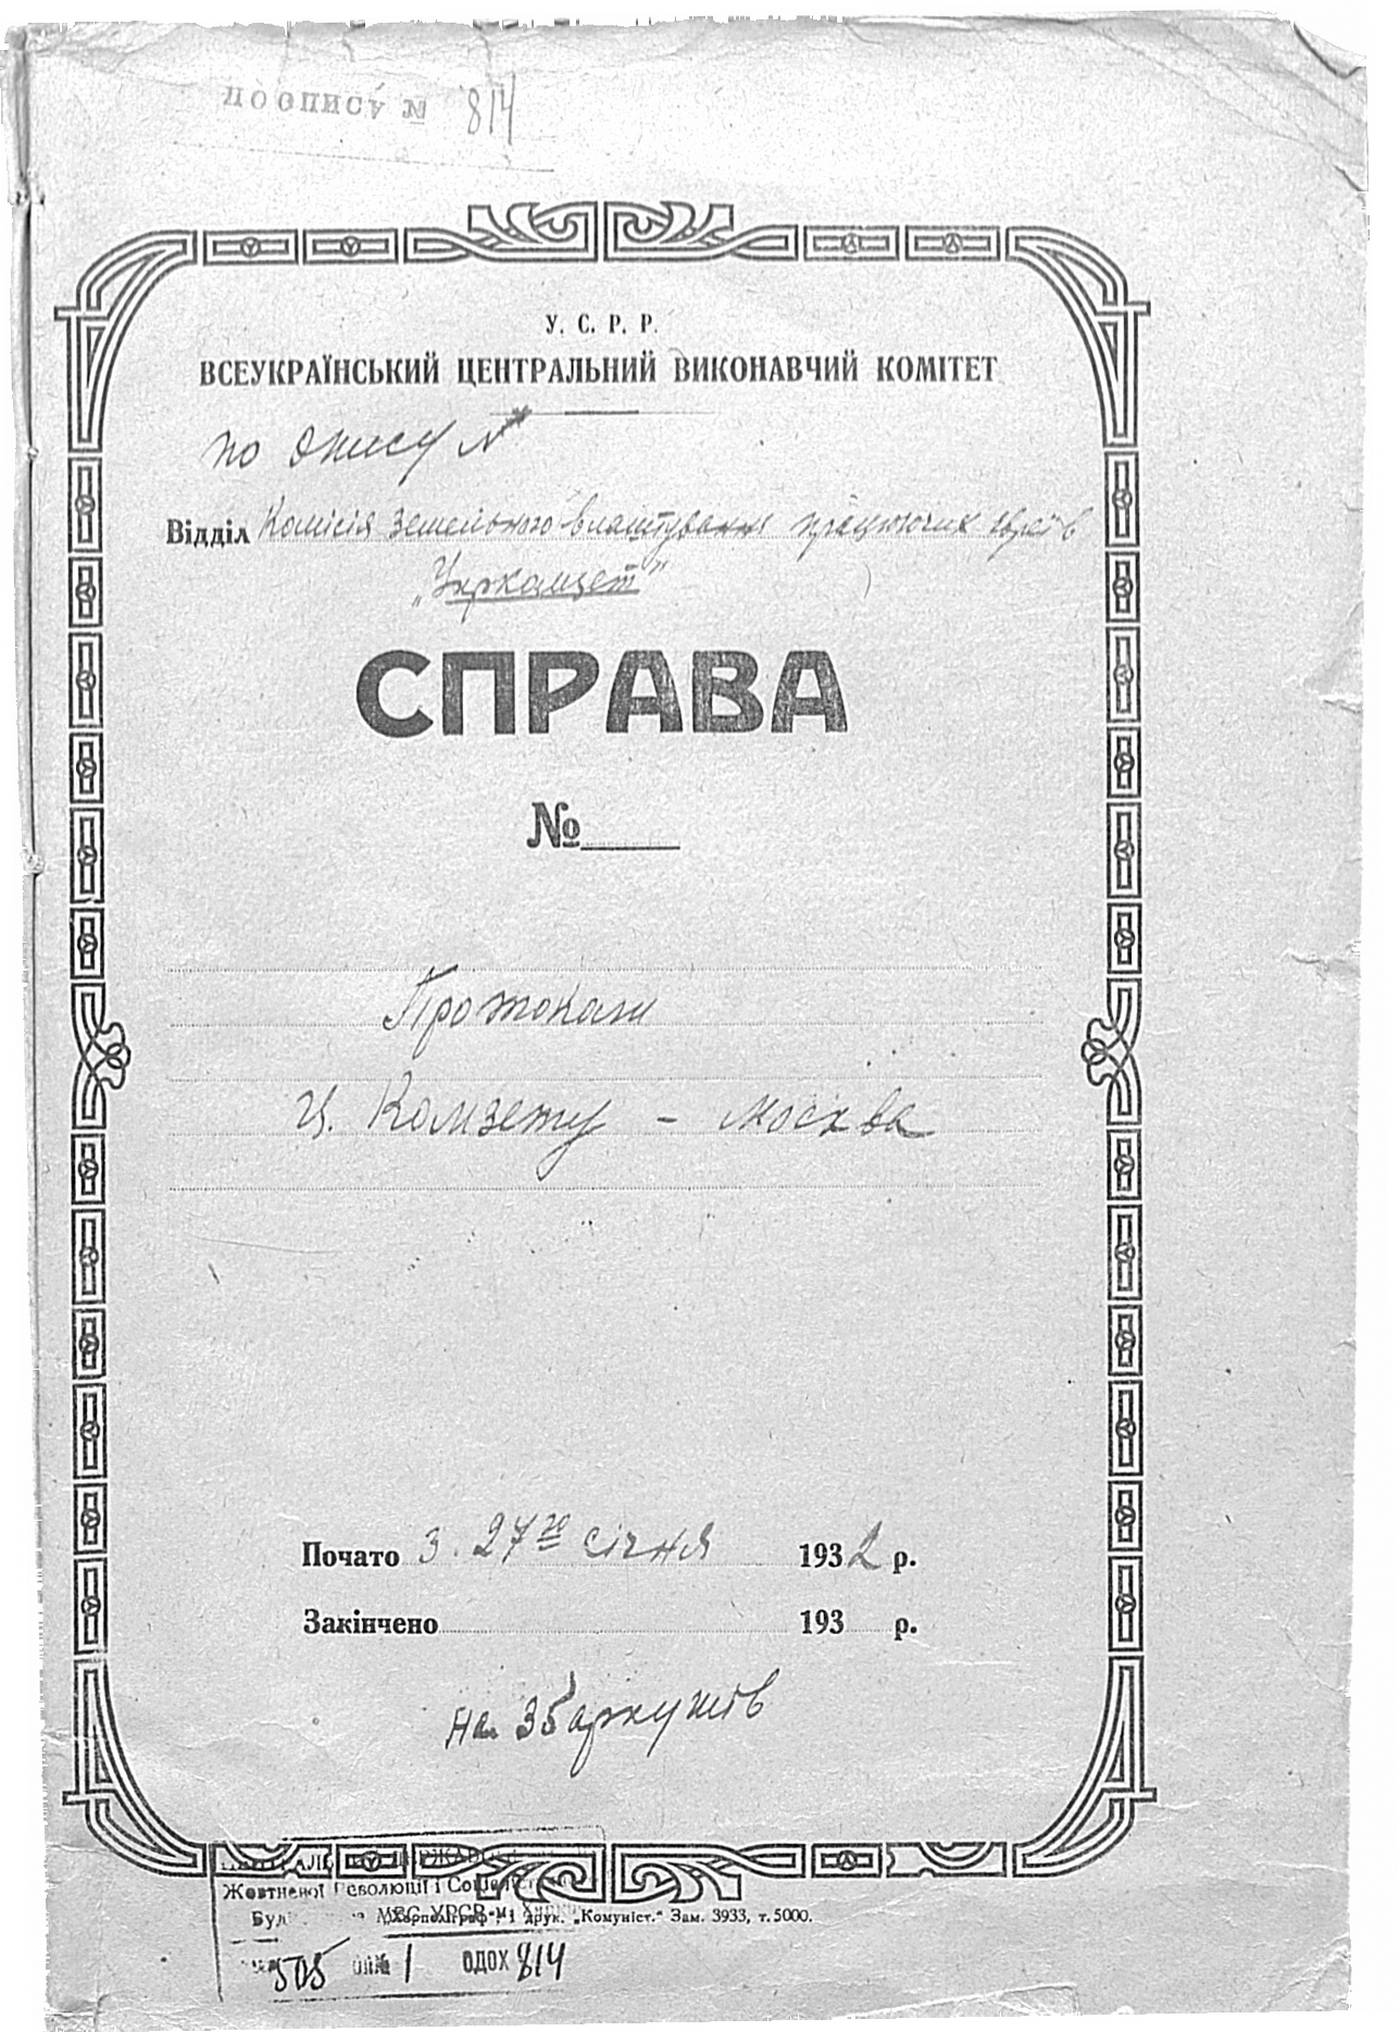 по опису № 814
У. С. Р. Р.
ВСЕУКРАЇНСЬКИЙ ЦЕНТРАЛЬНИЙ ВИКОНАВЧИЙ КОМІТЕТ
по опису №
Відділ Комісія земельного влаштування працюючих євреїв
„Укркомзет"
СПРАВА
№
Протоколи
Ц. Комзету - Москва
Почато з 27го січня 1932 р.
Закінчено 193 р.
на 35 аркушів
Жовтневої Революції і
МВС УРСР м.
„Харполіграф", 1 друк. „Комуніст." Зам. 3933, т. 5000.
505 1 ОДОХ 814